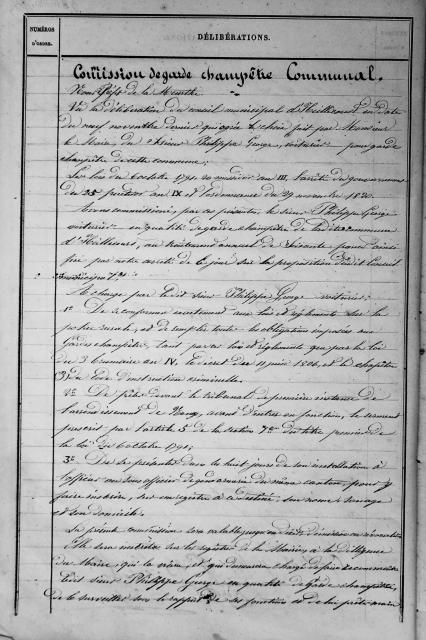 NUMÉROS
D'ORDRE.
DÉLIBÉRATIONS.
Commission de garde champêtre Communal.
Nous Préfet de la Meurthe
Vu la délibération du conseil municipal d' en date
du neuf novembre dernier qui agrée le choix fait par Monsieur
le Maire du Sieur Philippe George, voiturier pour garde
champêtre de cette commune;
Les lois des 6 octobre 1791, 20 messidor an III, l'arrêté du gouvernement
du 25 fructidor an IX et l'ordonnance du 29 novembre 1820
Avons commissionné, par ces présentes, le sieur Philippe George
voiturier en qualité de garde champêtre de la dite commune
d' au traitement annuel de soixante francs ainsi
fixé par notre arrêté de ce jour sur la proposition du dit Conseil
municipal.
A charge par le dit sieur Philippe George voiturier:
1° De se conformer exactement aux lois et règlements sur la
police rurale, et de remplir toutes les obligations imposées aux
gardes champêtres, tant par ces lois et règlements que par la loi
du 3 brumaire an IV, le décret du 11 juin 1806, et le chapitre
(3) du Code d'instruction criminelle.
2° De prêter devant le tribunal de première instance de
l'arrondissement de Nancy, avant d'entrer en fonction, le serment
prescrit par l'article 5 de la section 7me du titre premier de
la loi du 6 octobre 1791;
3° De se présenter dans les huit jours de son installation à
l'officier ou sous officier de gendarmerie du même canton, pour y
faire inscrire, sur un registre à ce destiné, son nom, son âge
et son domicile.
La présente commission sera valable jusqu'au démission ou révocation
Elle sera inscrite sur les registres de la Mairie, à la diligence
du Maire, qui la visera et qui demeurera chargé de faire reconnaître
ledit sieur Philippe George en qualité de garde champêtre,
de le surveiller sous le rapport de ses fonctions et de lui prêter main